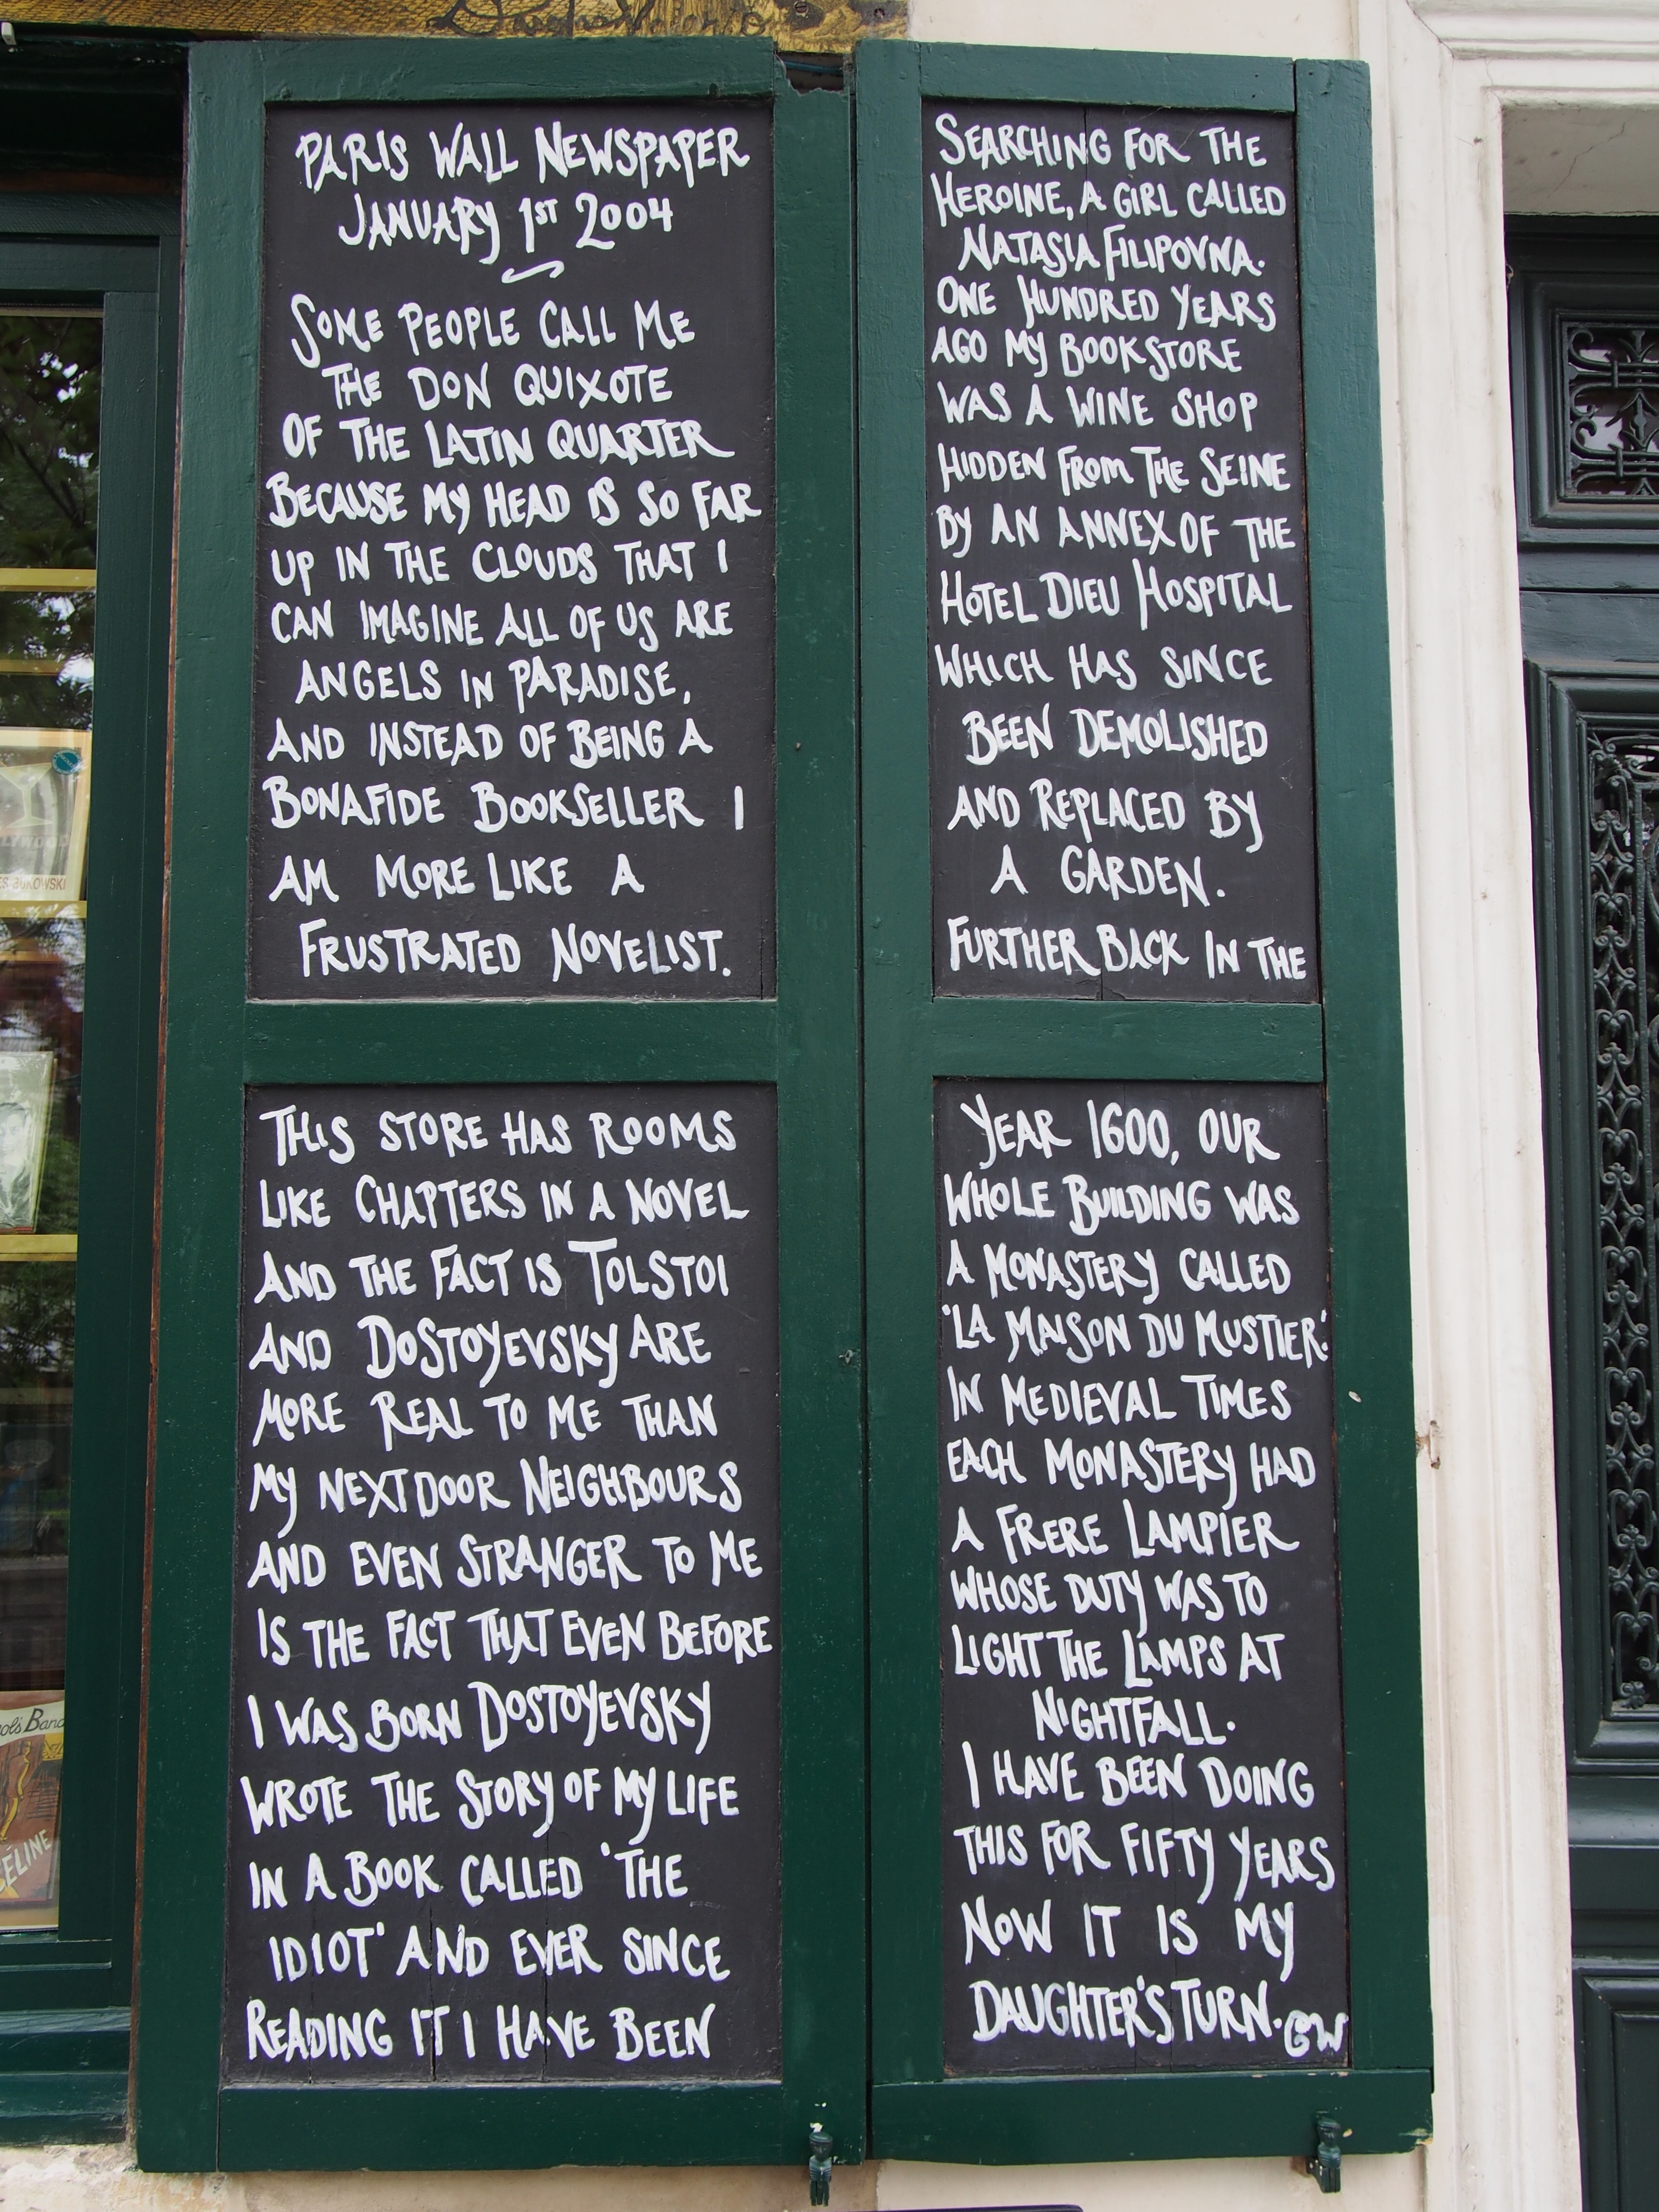 PARIS WALL NEWSPAPER
JANUARY 1ST 2004
SOME PEOPLE CALL ME
THE DON QUIXOTE
OF THE LATIN QUARTER
BECAUSE MY HEAD IS SO FAR
UP IN THE CLOUDS THAT I
CAN IMAGINE ALL OF US ARE
ANGELS IN PARADISE,
AND INSTEAD OF BEING A
BONAFIDE BOOKSELLER I
AM MORE LIKE A
FRUSTRATED NOVELIST.
THIS STORE HAS ROOMS
LIKE CHAPTERS IN A NOVEL
AND THE FACT IS TOLSTOI
AND DOSTOYEVSKY ARE
MORE REAL TO ME THAN
MY NEXT DOOR NEIGHBOURS
AND EVEN STRANGER TO ME
IS THE FACT THAT EVEN BEFORE
I WAS BORN DOSTOYEVSKY
WROTE THE STORY OF MY LIFE
IN A BOOK CALLED 'THE
IDIOT' AND EVER SINCE
READING IT I HAVE BEEN
SEARCHING FOR THE
HEROINE, A GIRL CALLED
NATASIA FILIPOVNA.
ONE HUNDRED YEARS
AGO MY BOOKSTORE
WAS A WINE SHOP
HIDDEN FROM THE SEINE
BY AN ANNEX OF THE
HOTEL DIEU HOSPITAL
WHICH HAS SINCE
BEEN DEMOLISHED
AND REPLACED BY
A GARDEN.
FURTHER BACK IN THE
YEAR 1600, OUR
WHOLE BUILDING WAS
A MONASTERY CALLED
'LA MAISON DU MUSTIER'.
IN MEDIEVAL TIMES
EACH MONASTERY HAD
A FRERE LAMPIER
WHOSE DUTY WAS TO
LIGHT THE LAMPS AT
NIGHTFALL.
I HAVE BEEN DOING
THIS FOR FIFTY YEARS
NOW IT IS MY
DAUGHTER'S TURN. GW